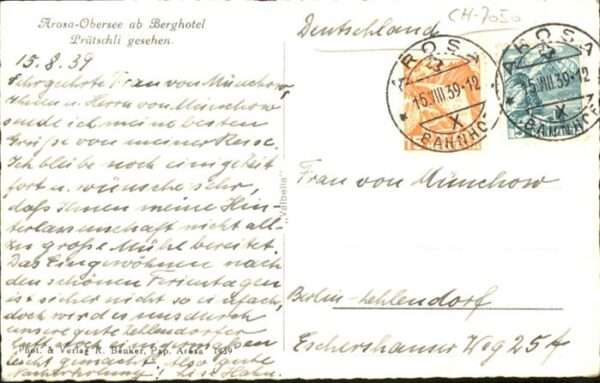 Arosa-Obersee ab Berghotel
Prätschli gesehen.
15.8.39
Sehr geehrte Frau von Münchow,
Ihnen u. Herrn von Münchow
sende ich meine besten
Grüße von meiner Reise.
Ich bleibe noch einige Zeit
fort u. wünsche sehr,
daß Ihnen meine Hin-
terlassenschaft nicht all-
zu große Mühe bereitet.
Das Eingewöhnen nach
den schönen Ferientagen
ist sicher nicht so einfach,
doch wird es uns durch
unsere gute Zehlendorfer
Luft
leicht gemacht. Also gute
Nacherholung! Hahn.
Phot. & Verlag R. Benker, Pap. Arosa 1939
"Valbella"
Deutschland
CH-7050
AROSA
15.VIII.39-12
X
BAHNHOF
AROSA
15.VIII.39-12
X
BAHNHOF
Frau von Münchow
Berlin-Zehlendorf
Eschershauser Weg 25f